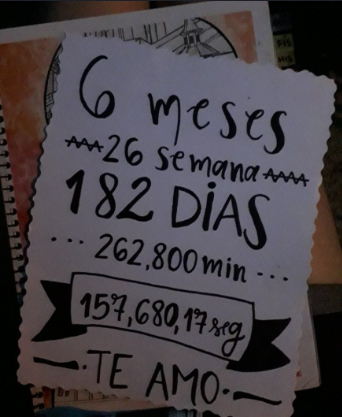 6 meses
26 semana
182 DiAS
... 262,800 min ...
157,680,17 seg
TE AMO